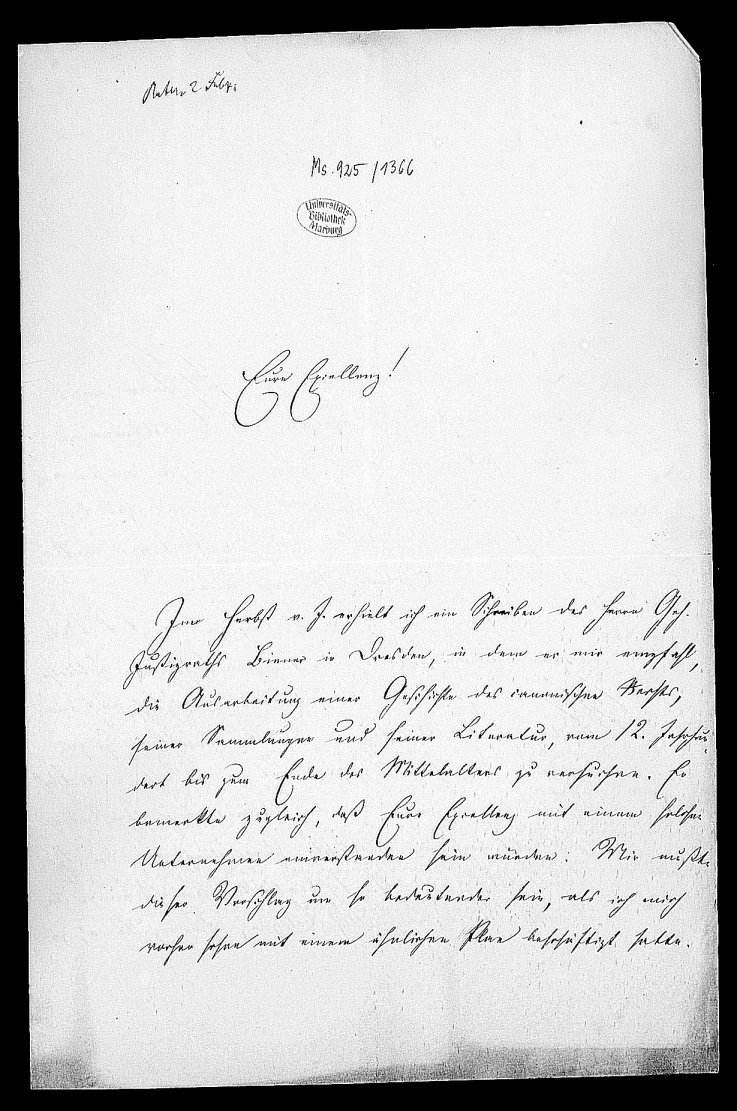 2 Febr.
Ms. 925/1366
Universitäts-
Bibliothek
Marburg
Eure Excellenz!
Im Herbst v. J. erhielt ich ein Schreiben des Herrn Geh.
Justizraths Biener in Dresden, in dem er mir empfahl,
die Ausarbeitung einer Geschichte des canonischen Rechts,
seiner Sammlungen und seiner Literatur, vom 12. Jahrhun-
dert bis zum Ende des Mittelalters zu versuchen. Er
bemerkte zugleich, daß Eure Excellenz mit einem solchen
Unternehmen einverstanden sein würden. Mir mußte
dieser Vorschlag um so bedeutender sein, als ich mich
vorher schon mit einem ähnlichen Plan beschäftigt hatte.